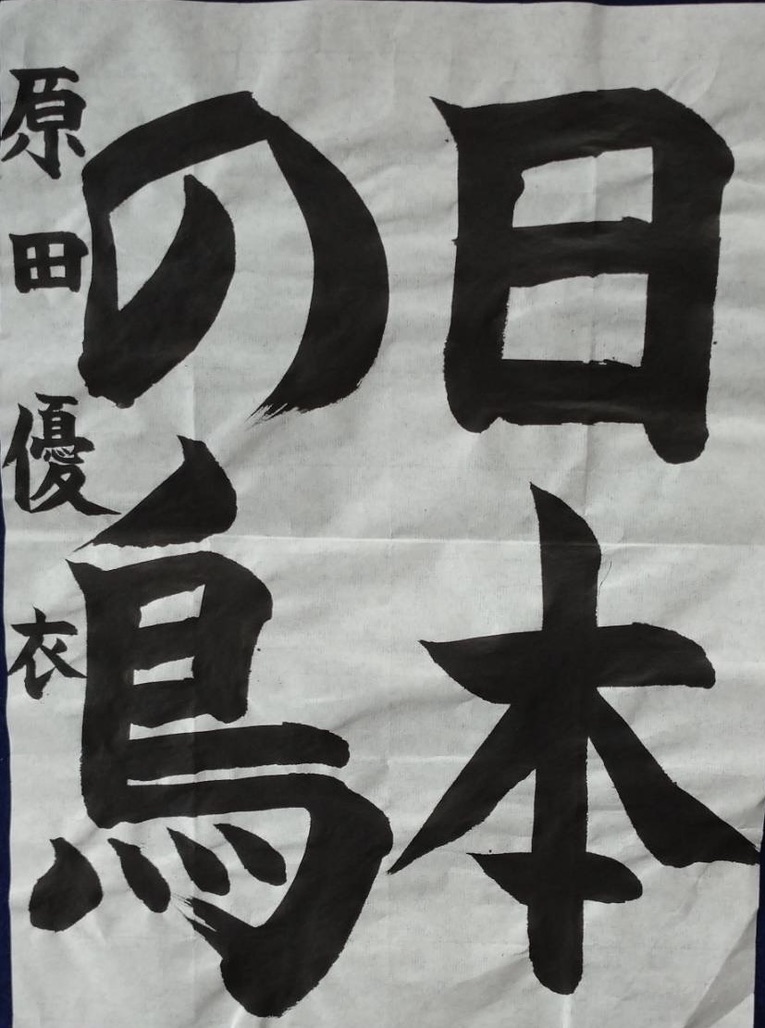 日本
の鳥
原田優衣